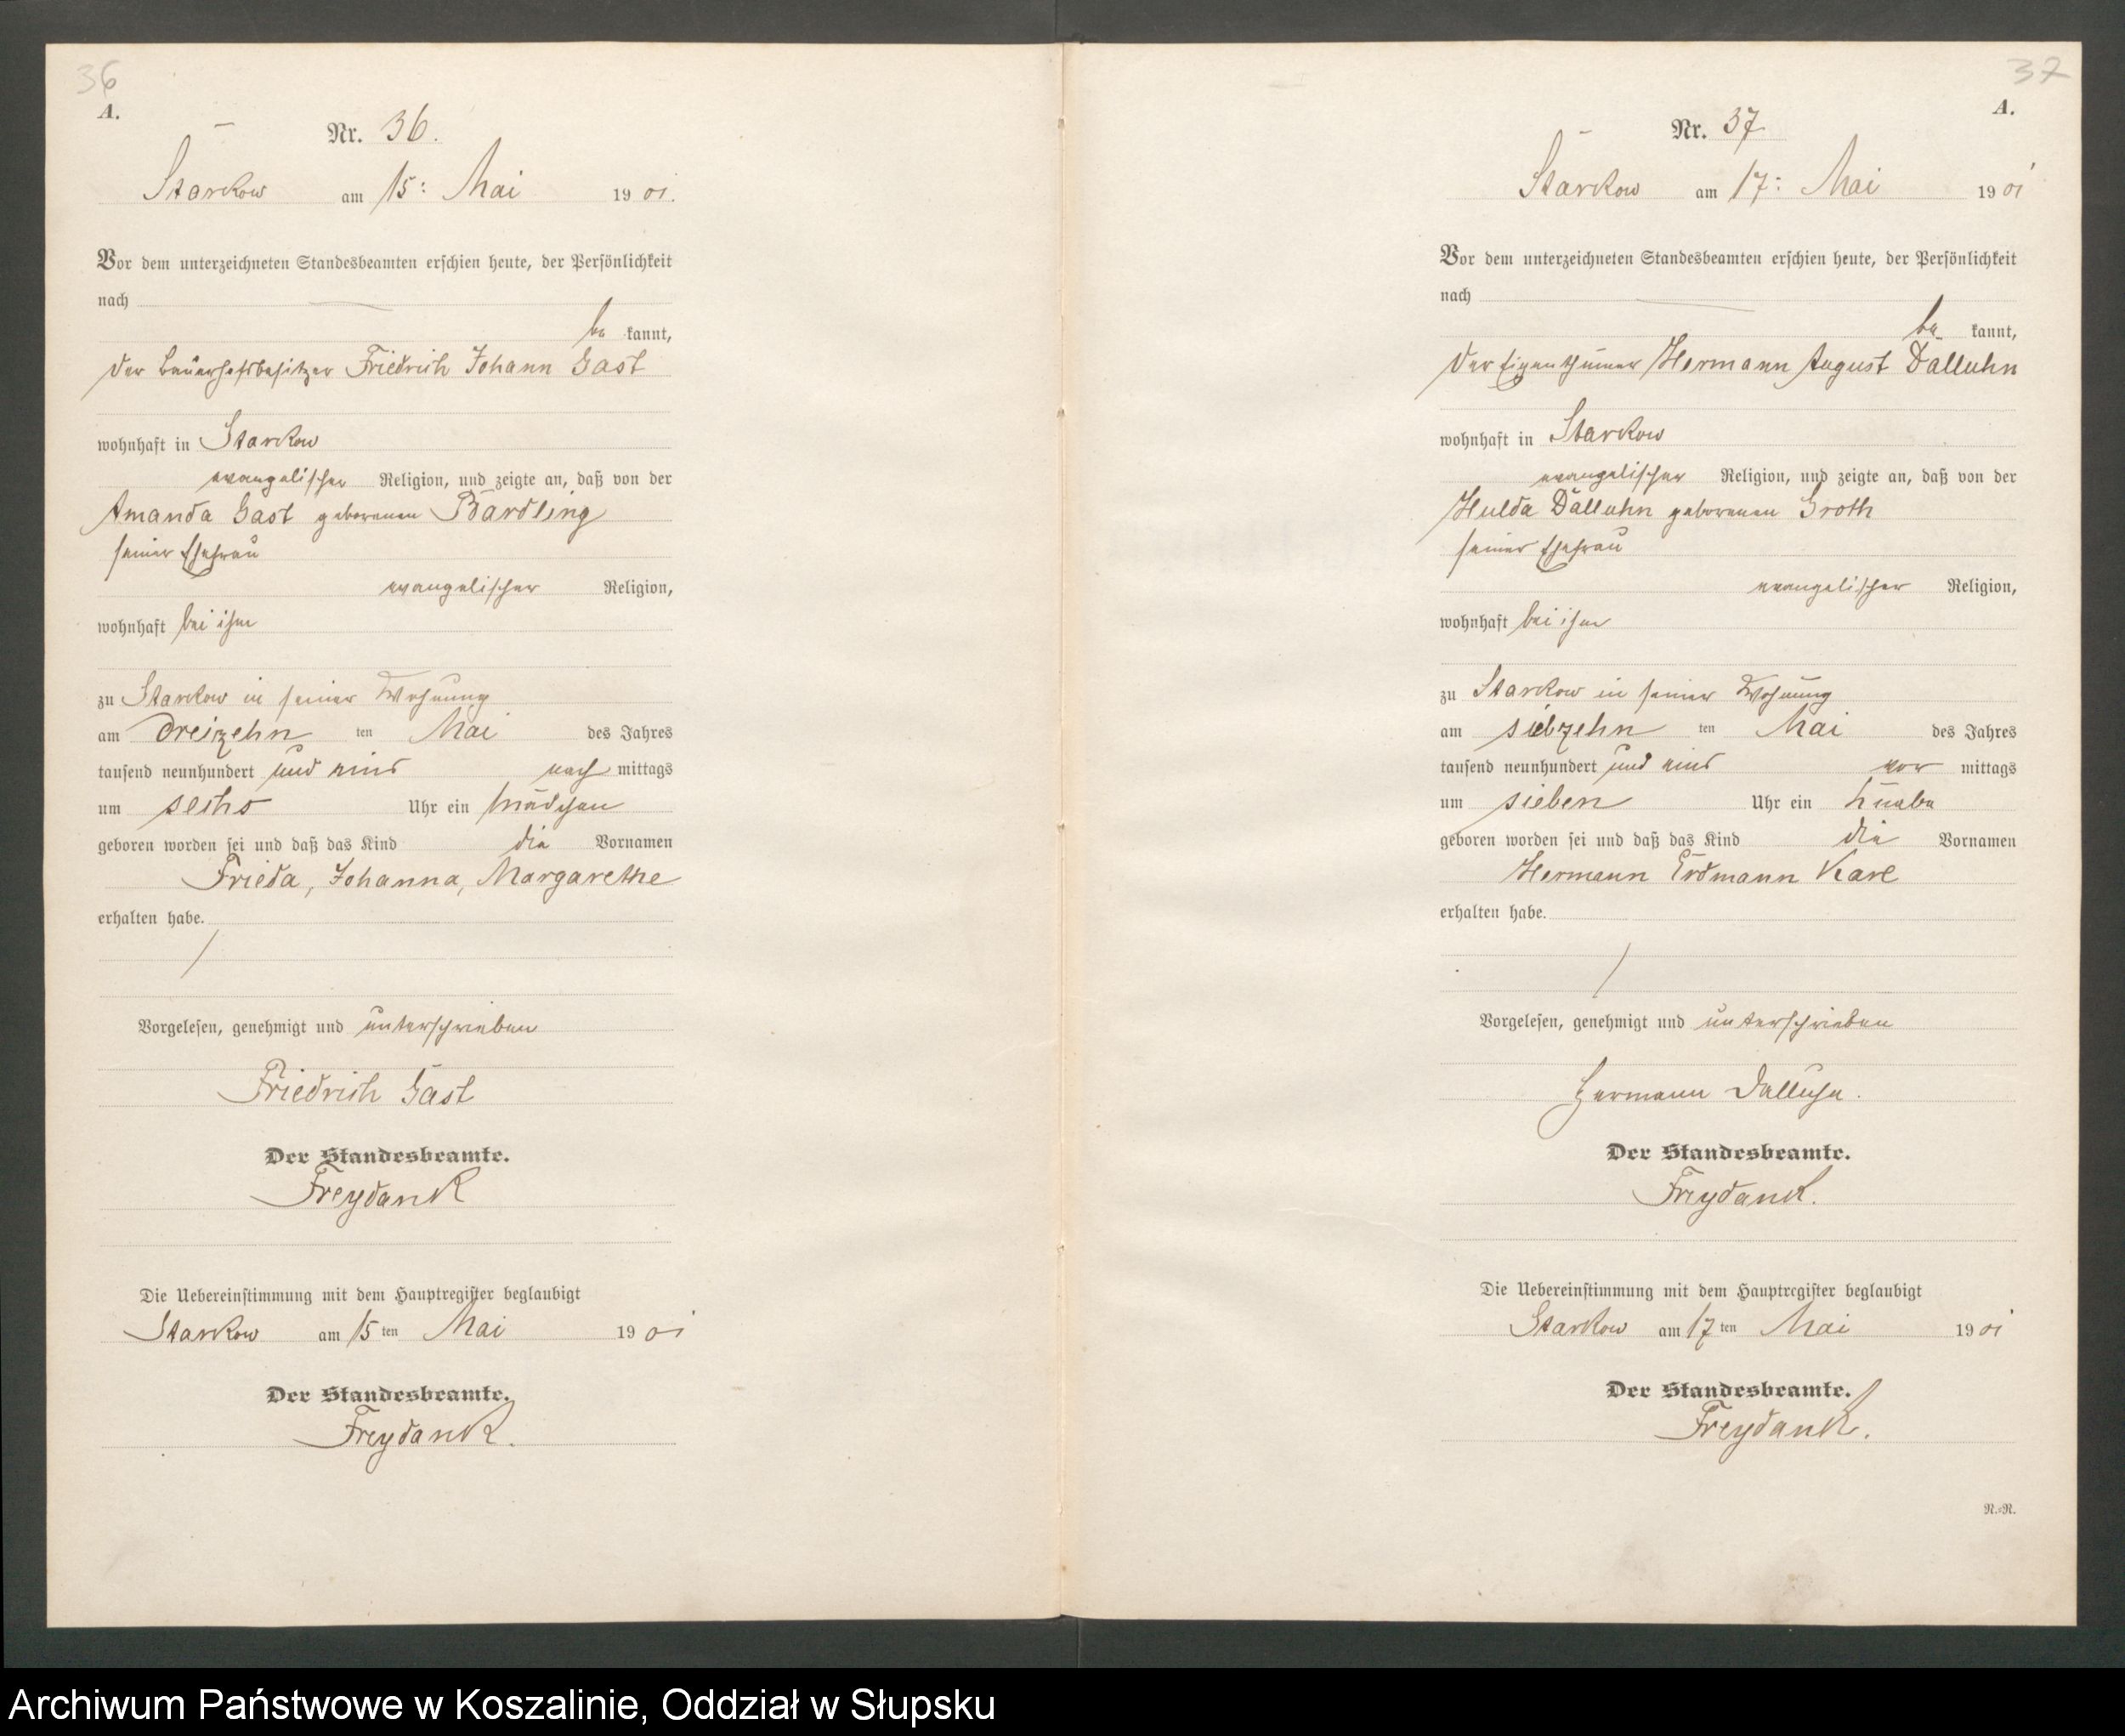 36
A.
Nr. 36.
Starkow am 15: Mai 1901.
Vor dem unterzeichneten Standesbeamten erschien heute, der Persönlichkeit
nach
be kannt,
der Bauerhofsbesitzer Friedrich Johann Gast
wohnhaft in Starkow
evangelischer Religion, und zeigte an, daß von der
Amanda Gast geborenen Bardling
seiner Ehefrau
evangelischer Religion,
wohnhaft bei ihm
zu Starkow in seiner Wohnung
am dreizehn ten Mai des Jahres
tausend neunhundert und eins nach mittags
um sechs Uhr ein Mädchen
geboren worden sei und daß das Kind die Vornamen
Frieda, Johanna, Margarethe
erhalten habe.
Vorgelesen, genehmigt und unterschrieben
Friedrich Gast
Der Standesbeamte.
Freydank
Die Uebereinstimmung mit dem Hauptregister beglaubigt
Starkow am 15 ten Mai 1901
Der Standesbeamte.
Freydank.
37
A.
Nr. 37
Starkow am 17: Mai 1901
Vor dem unterzeichneten Standesbeamten erschien heute, der Persönlichkeit
nach
be kannt,
der Eigenthümer Hermann August Dalluhn
wohnhaft in Starkow
evangelischer Religion, und zeigte an, daß von der
Hulda Dalluhn geborenen Groth
seiner Ehefrau
evangelischer Religion,
wohnhaft bei ihm
zu Starkow in seiner Wohnung
am siebzehn ten Mai des Jahres
tausend neunhundert und eins vor mittags
um sieben Uhr ein Knabe
geboren worden sei und daß das Kind die Vornamen
Hermann Erdmann Karl
erhalten habe.
Vorgelesen, genehmigt und unterschrieben
Hermann Dalluhn.
Der Standesbeamte.
Freydank.
Die Uebereinstimmung mit dem Hauptregister beglaubigt
Starkow am 17 ten Mai 1901
Der Standesbeamte.
Freydank.
N.=R.
Archiwum Państwowe w Koszalinie, Oddział w Słupsku